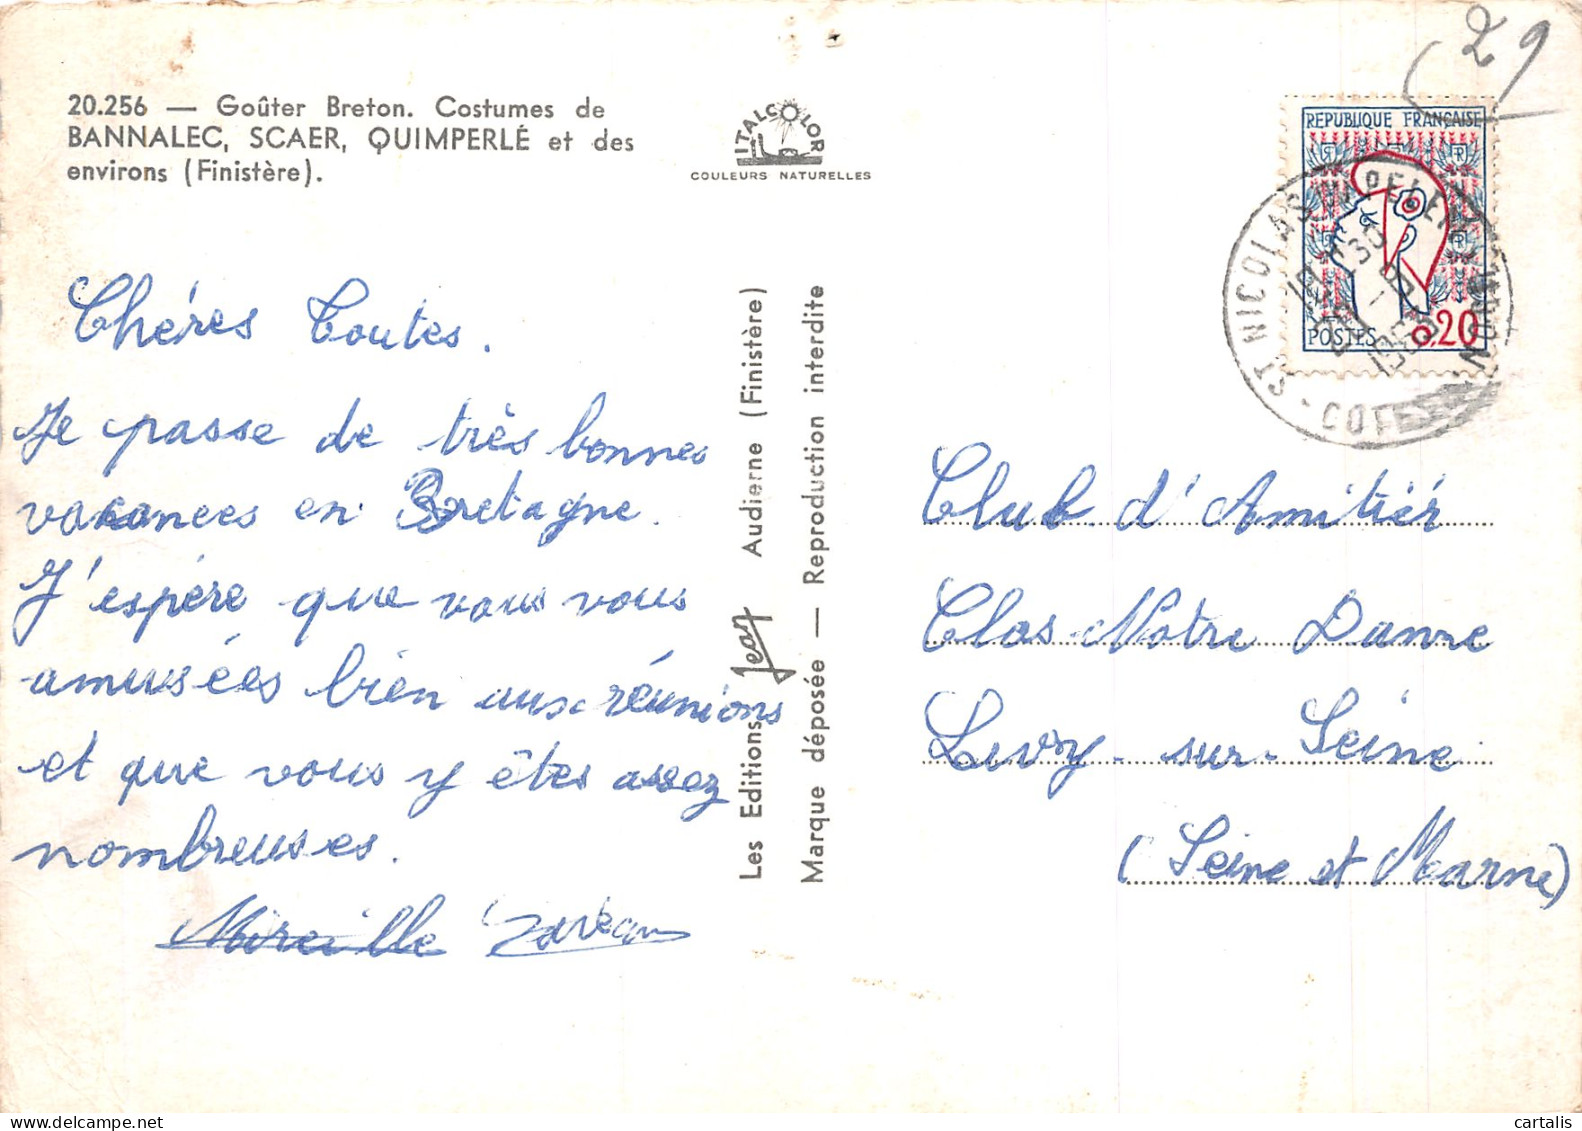 20.256 — Goûter Breton. Costumes de
BANNALEC, SCAER, QUIMPERLÉ et des
environs (Finistère).
ITALCOLOR
COULEURS NATURELLES
29
REPUBLIQUE FRANÇAISE
POSTES 0,20
ST NICOLAS DU PELEM
1965
Chéres Toutes.
Je passe de très bonnes
vacances en Bretagne.
J'espère que vous vous
amusées bien aux réunions
et que vous y êtes assez
nombreuses.
Mireille
Les Editions Jean Audierne (Finistère)
Marque déposée — Reproduction interdite
Club d'Amitiér
Clos Notre Danne
Livry-sur-Seine
(Seine et Marne)
cartalis